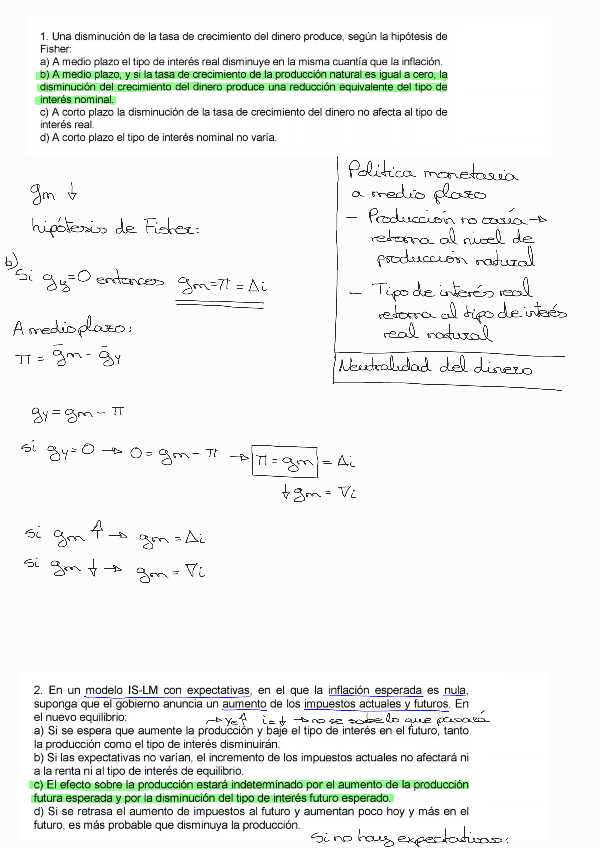 1. Una disminución de la tasa de crecimiento del dinero produce, según la hipótesis de
Fisher:
a) A medio plazo el tipo de interés real disminuye en la misma cuantía que la inflación.
b) A medio plazo, y si la tasa de crecimiento de la producción natural es igual a cero, la
disminución del crecimiento del dinero produce una reducción equivalente del tipo de
interés nominal.
c) A corto plazo la disminución de la tasa de crecimiento del dinero no afecta al tipo de
interés real.
d) A corto plazo el tipo de interés nominal no varía.
gm ↓
hipótesis de Fisher:
b)
Si gy=0 entonces gm=π = Δi
A medio plazo:
π = ḡm - ḡy
Política monetaria
a medio plazo
- Producción no varía →
retorna al nivel de
producción natural
- Tipo de interés real
retorna al tipo de interés
real natural
Neutralidad del dinero
gy = gm - π
si gy=0 → 0 = gm - π → π = gm = Δi
↓ gm = ∇i
si gm ↑ → gm = Δi
si gm ↓ → gm = ∇i
2. En un modelo IS-LM con expectativas, en el que la inflación esperada es nula,
suponga que el gobierno anuncia un aumento de los impuestos actuales y futuros. En
el nuevo equilibrio: → ye↑ ie↓ → no se sabe lo que pasará
a) Si se espera que aumente la producción y baje el tipo de interés en el futuro, tanto
la producción como el tipo de interés disminuirán.
b) Si las expectativas no varían, el incremento de los impuestos actuales no afectará ni
a la renta ni al tipo de interés de equilibrio.
c) El efecto sobre la producción estará indeterminado por el aumento de la producción
futura esperada y por la disminución del tipo de interés futuro esperado.
d) Si se retrasa el aumento de impuestos al futuro y aumentan poco hoy y más en el
futuro, es más probable que disminuya la producción.
Si no hay expectativas: